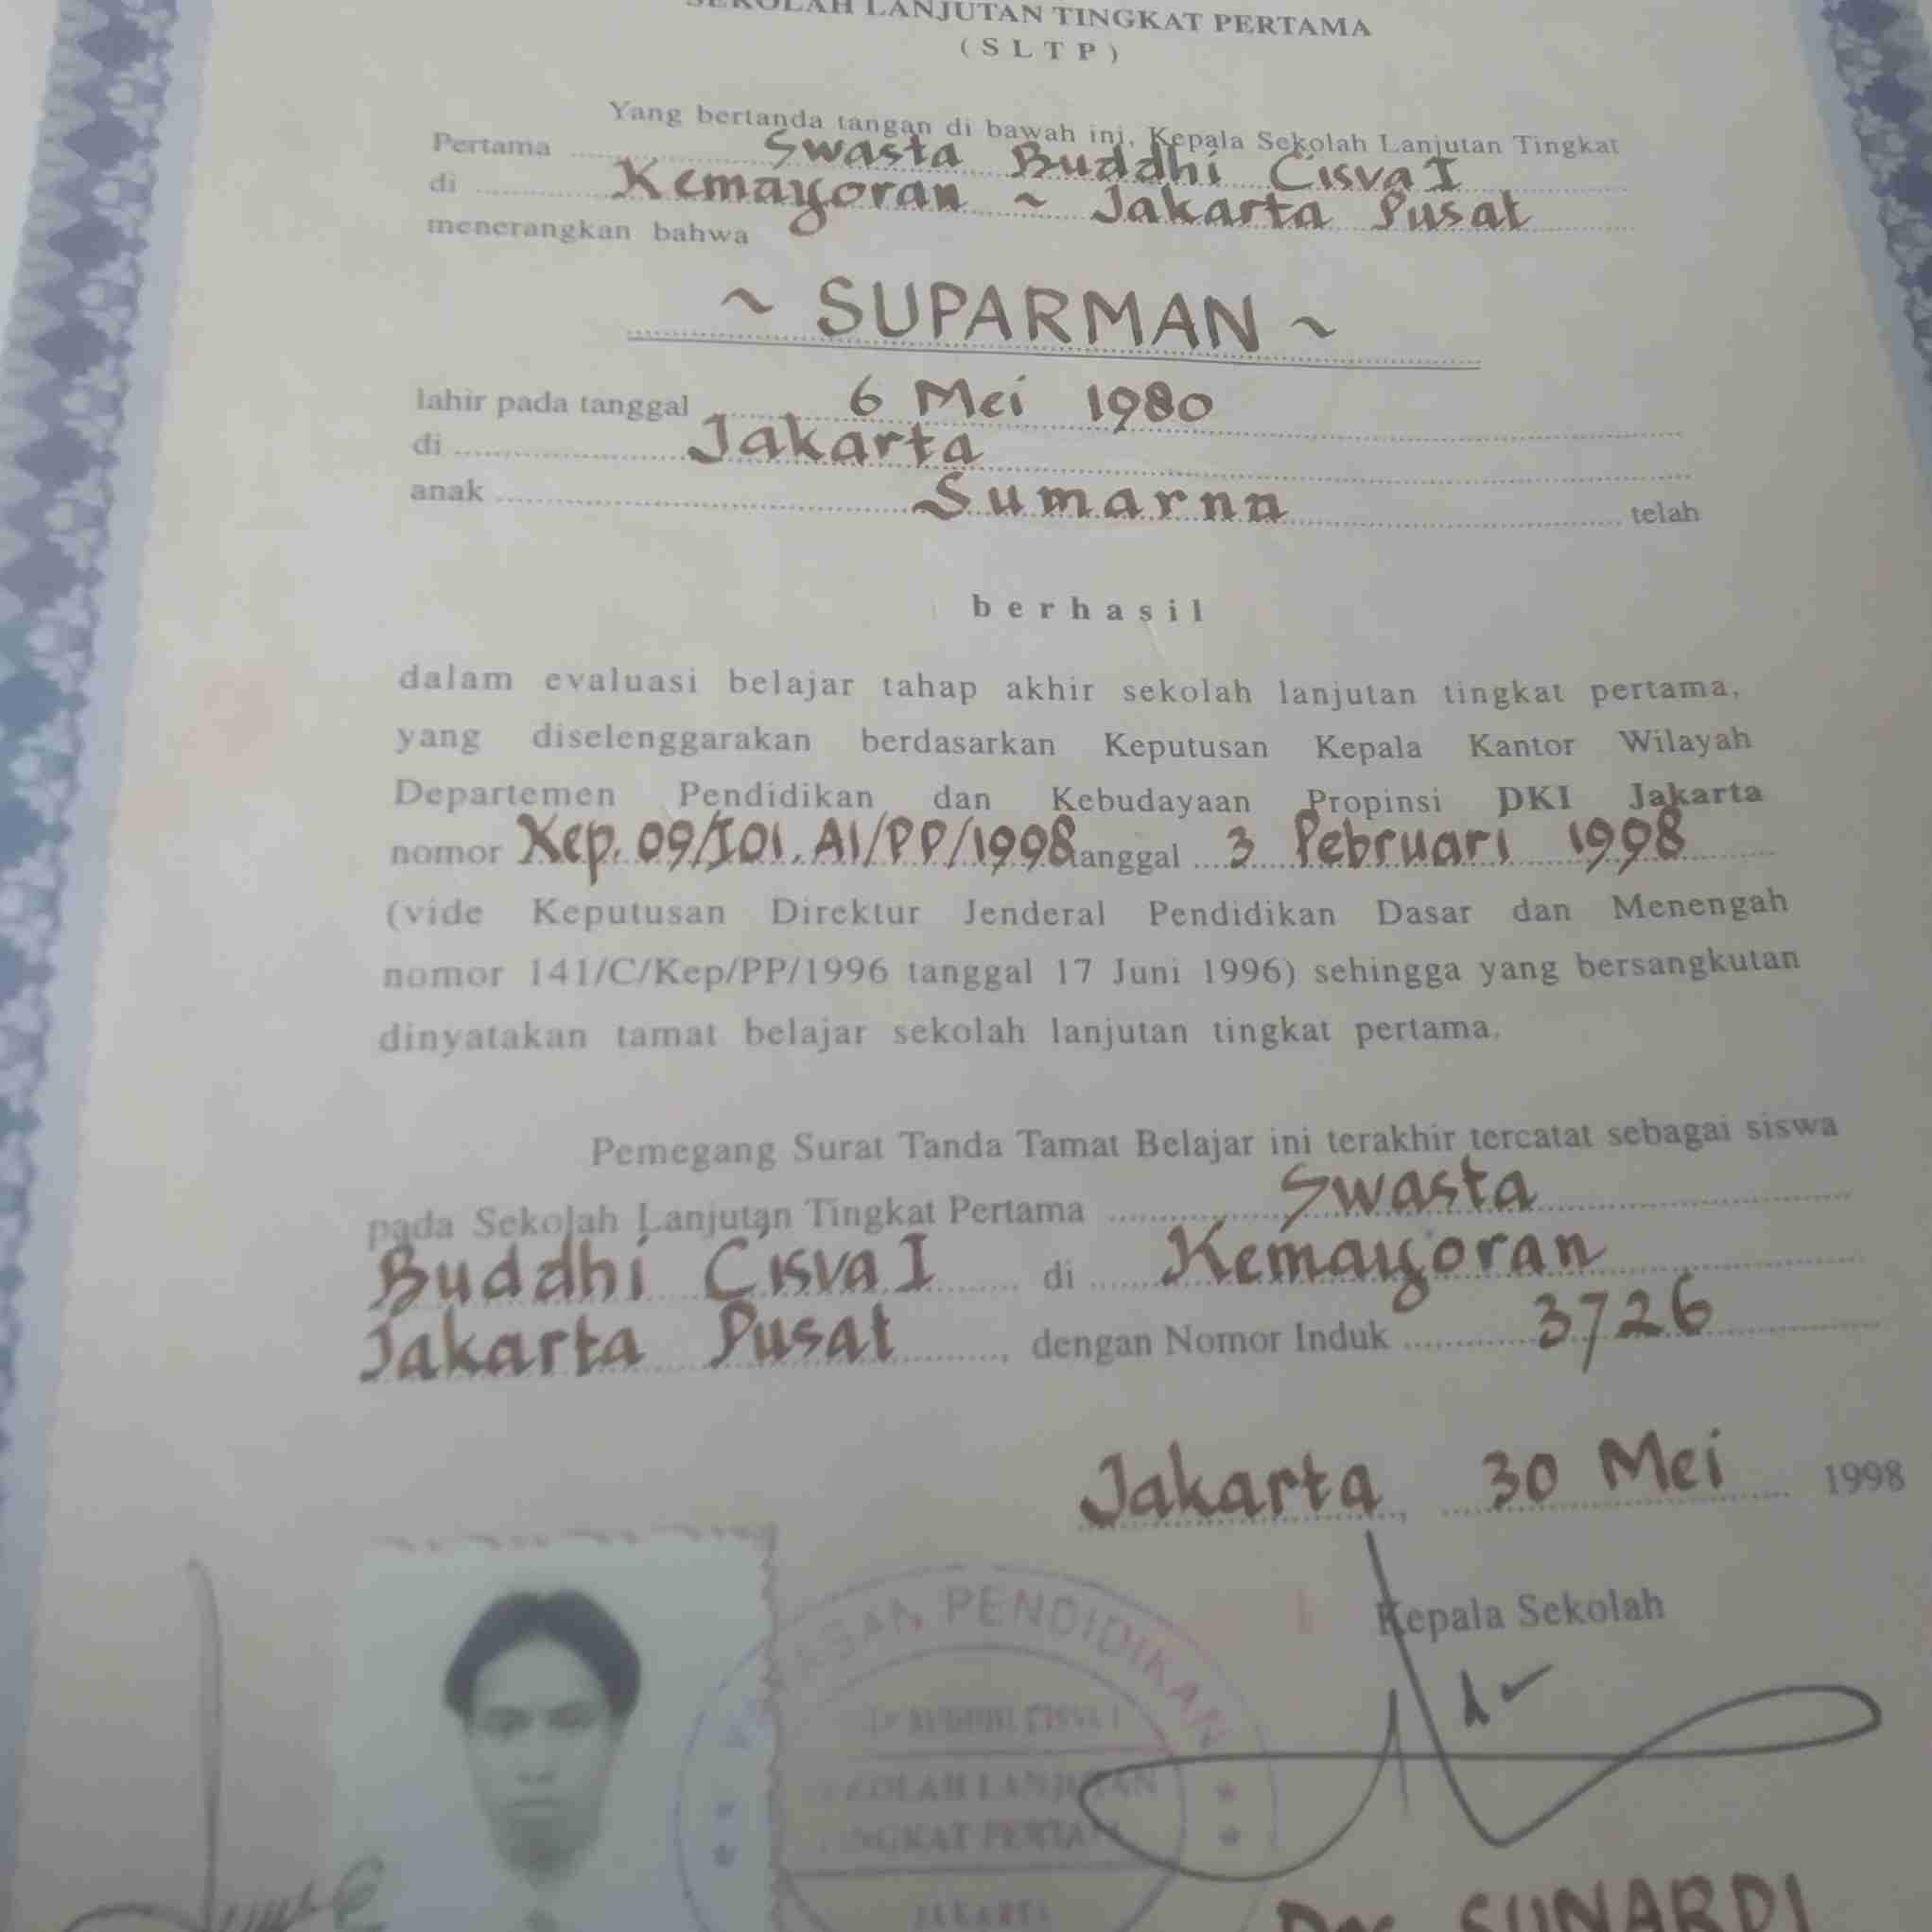 SEKOLAH LANJUTAN TINGKAT PERTAMA
(SLTP)
Yang bertanda tangan di bawah ini, Kepala Sekolah Lanjutan Tingkat
Pertama Swasta Buddhi Cisva I
di Kemayoran ~ Jakarta Pusat
menerangkan bahwa
~ SUPARMAN ~
lahir pada tanggal 6 Mei 1980
di Jakarta
anak Sumarna telah
berhasil
dalam evaluasi belajar tahap akhir sekolah lanjutan tingkat pertama,
yang diselenggarakan berdasarkan Keputusan Kepala Kantor Wilayah
Departemen Pendidikan dan Kebudayaan Propinsi DKI Jakarta
nomor Kep. 09/I01.A1/PP/1998 tanggal 3 Pebruari 1998
(vide Keputusan Direktur Jenderal Pendidikan Dasar dan Menengah
nomor 141/C/Kep/PP/1996 tanggal 17 Juni 1996) sehingga yang bersangkutan
dinyatakan tamat belajar sekolah lanjutan tingkat pertama.
Pemegang Surat Tanda Tamat Belajar ini terakhir tercatat sebagai siswa
pada Sekolah Lanjutan Tingkat Pertama Swasta
Buddhi Cisva I di Kemayoran
Jakarta Pusat, dengan Nomor Induk 3726
Jakarta, 30 Mei 1998
Kepala Sekolah
PENDIDIKAN
BUDDHI CISVA I
LANJUTAN
JAKARTA
Drs SUNARDI